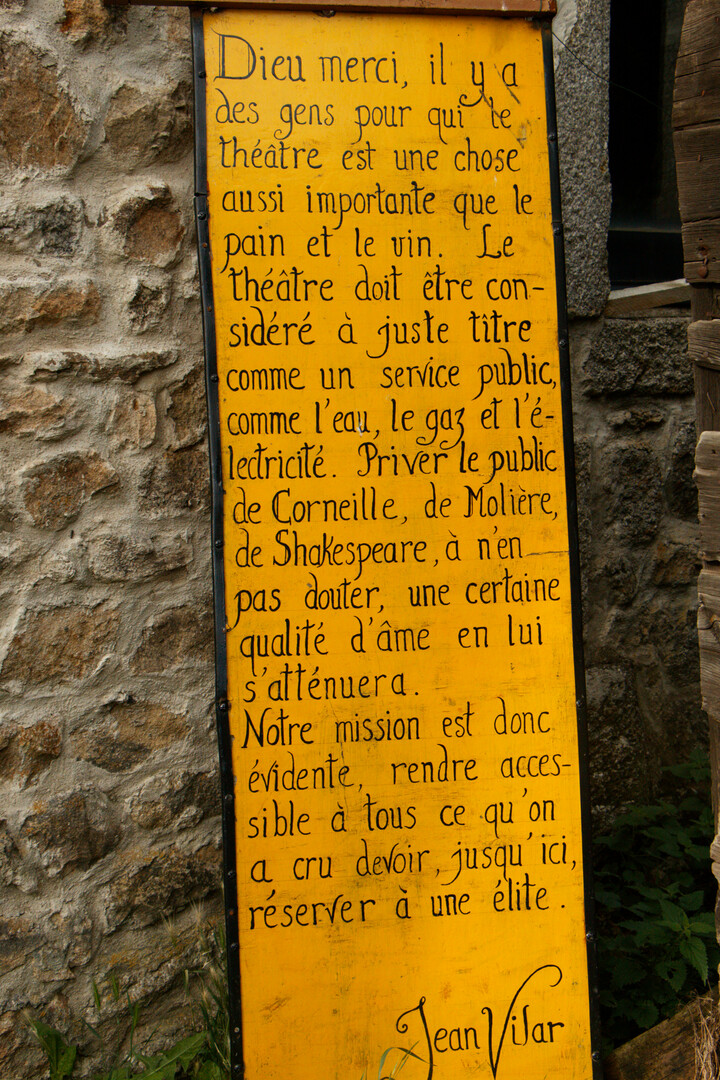 Dieu merci, il y a
des gens pour qui le
théâtre est une chose
aussi importante que le
pain et le vin. Le
théâtre doit être con-
sidéré à juste tître
comme un service public,
comme l'eau, le gaz et l'é-
lectricité. Priver le public
de Corneille, de Molière,
de Shakespeare, à n'en
pas douter, une certaine
qualité d'âme en lui
s'atténuera.
Notre mission est donc
évidente, rendre acces-
sible à tous ce qu'on
a cru devoir, jusqu'ici,
réserver à une élite.
Jean Vilar